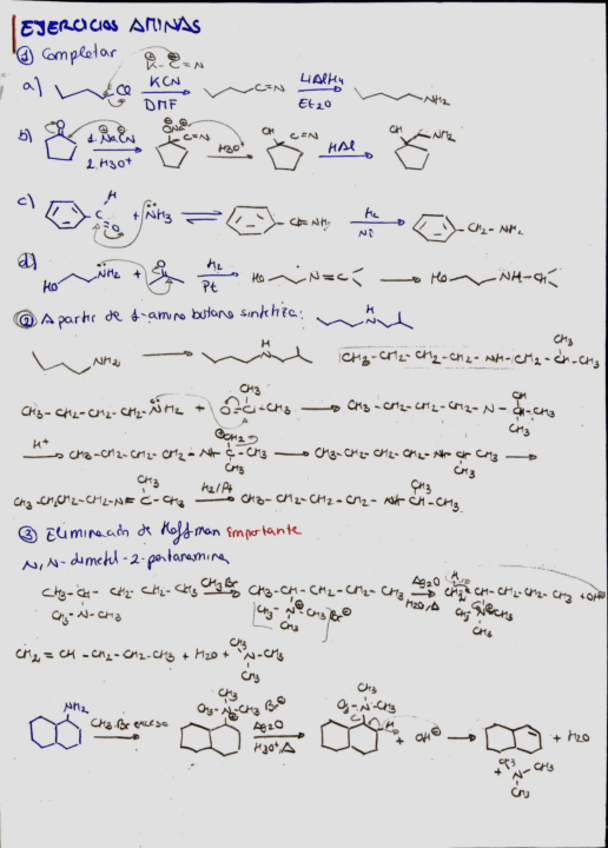 EJERCICIOS AMINAS
① Completar
K⊕ - C⊖ ≡ N
a) Cl KCN DMF C≡N LiAlH4 Et2O NH2
b) O 1. NaCN 2. H3O+ ONa C≡N H3O+ OH C≡N HAl OH NH2
c) H C=O + NH3 ⇌ C=NH H2 Ni CH2-NH2
d) HO NH2 + O H2 Pt HO N=C → HO NH-CH
② A partir de 1-amino butano sintetiza: H N
NH2 → H N CH3-CH2-CH2-CH2-NH-CH2-CH-CH3 CH3
CH3-CH2-CH2-CH2-NH2 + O=C-CH3 CH3 → CH3-CH2-CH2-CH2-N-C-CH3 OH CH3
H+ → CH3-CH2-CH2-CH2-NH-C-CH3 OH2 CH3 → CH3-CH2-CH2-CH2-NH-C-CH3 CH3 →
CH3-CH2CH2-CH2-N=C-CH3 CH3 H2/Pt → CH3-CH2-CH2-CH2-NH-CH-CH3 CH3
③ Eliminación de Hoffman importante
N,N-dimetil-2-pentanamina
CH3-CH-CH2-CH2-CH3 CH3Br → CH3-CH-CH2-CH2-CH3 Ag2O H2O,Δ → CH2-CH-CH2-CH2-CH3 + OH⊖
CH3-N-CH3 CH3-N⊕-CH3 CH3 Br⊖ CH3-N⊕-CH3 CH3
CH2=CH-CH2-CH2-CH3 + H2O + CH3-N-CH3 CH3
NH2 CH3Br exceso CH3 CH3-N-CH3 Br⊖ Ag2O H3O+,Δ CH3 CH3-N-CH3 H + OH⊖ → + H2O
+ CH3 N-CH3 CH3